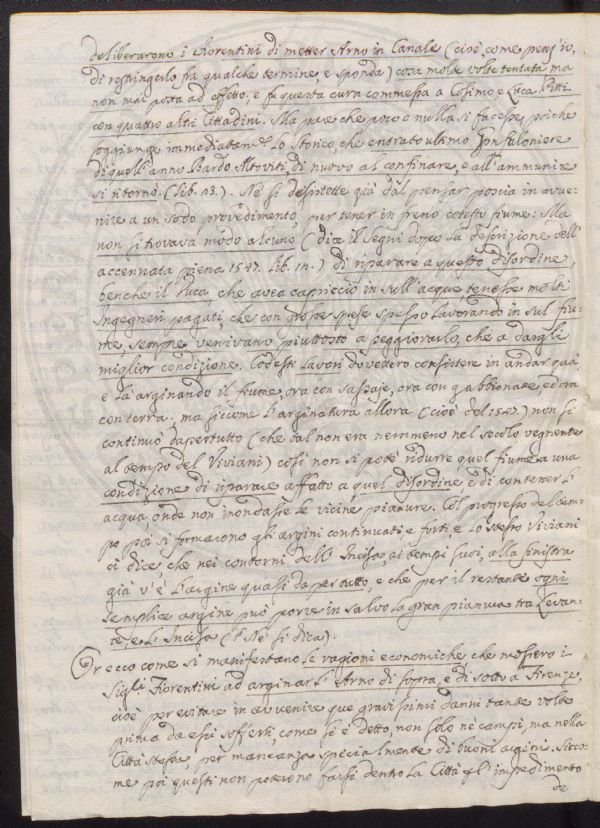 deliberarono i Fiorentini di metter Arno in Canale (cioè, come pens'io,
di restringerlo fra qualche termine, e sponda) cosa molte volte tentata ma
non mai posta ad effetto, e fu questa cura commessa a Cosimo, e Luca Pitti
con quattro altri Cittadini. Ma pare che poco e nulla si facesse, poiche
soggiunge immediatam.e lo Storico, che entrato ultimo Gonfaloniere
di quell'anno Bardo Altoviti, di nuovo al confinare, e all'ammunire
si ritornò (lib. 13.). Nè si desistette già dal pensar poscia in avve-
nire a un sodo provedimento, per tener in freno cotesto fiume: Ma
non si trovava modo alcuno (dice il Segni dopo la descrizione dell'
accennata piena 1547. lib. 12.) di riparare a questo disordine,
benche il Duca, che avea capriccio in sull'acque, tenesse molti
Ingegneri pagati, che con grosse spese spesso lavorando in sul fiu-
me, sempre venivano piuttosto a peggiorarlo, che a dargli
miglior condizione. Codesti lavori dovettero consistere in andar quà,
e là arginando il fiume, ora con sassaje, ora con gabbionate, ed ora
con terra; ma siccome l'arginatura allora (cioè del 1547.) non si
continuò dapertutto (che tal non era nemmeno nel secolo vegnente
al tempo del Viviani) così non si potè ridurre quel fiume a una
condizione di riparare affatto a quel disordine e di contener l'
acqua, onde non inondasse le vicine pianure. Col progresso del tem-
po poi si formarono gli argini continuati, e forti, e lo stesso Viviani
ci dice, che nei contorni dell'Incisa, ai tempi suoi, alla sinistra
già v'è l'argine quasi dapertutto, e che per il restante ogni
semplice argine può porre in salvo la gran pianura tra Levan-
e l'Incisa
Or ecco come si manifestano le ragioni economiche che mossero i
Sigli Fiorentini ad arginar l'Arno di sopra, e di sotto a Firenze,
cioè per evitare in avvenire que gravissimi danni tante volte
prima da essi sofferti, come si è detto, non solo ne campi, ma nella
Città stessa, per mancanza specialmente di buoni argini. Sicco-
me poi questi non poterono farsi dentro la Città p l'impedimento
de